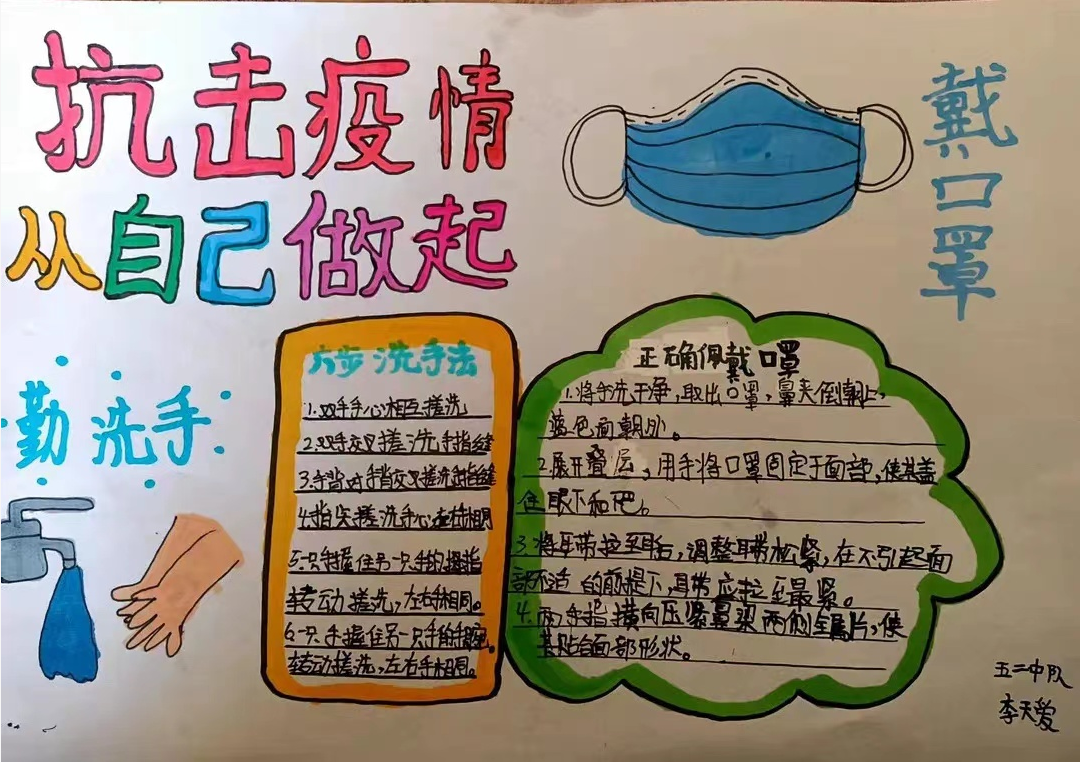 抗击疫情
从自己做起
戴口罩
勤洗手
六步洗手法
1.双手手心相互搓洗
2.双手交叉搓洗手指缝
3.手背对手背交叉搓洗手指缝
4.指尖搓洗手心左右相同
5.一只手握住另一只手的拇指
转动搓洗,左右手相同。
6.一只手握住另一只手的手腕
转动搓洗,左右手相同。
正确佩戴口罩
1.将手洗干净,取出口罩,鼻夹侧朝上,
蓝色面朝外。
2.展开叠层,用手将口罩固定于面部,使其盖
住眼下和吧。
3.将耳带拉至耳后,调整耳带松紧,在不引起面
部不适的前提下,耳带应拉至最紧。
4.两手指横向压紧鼻梁两侧金属片,使
其贴合面部形状。
五二中队
李天爱